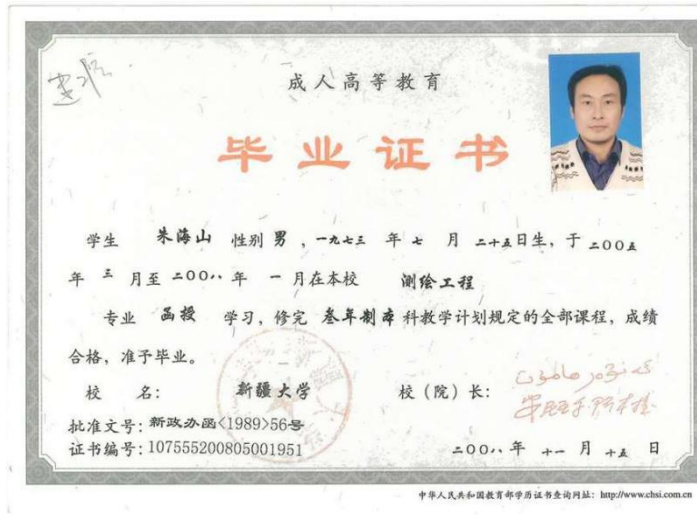 成人高等教育
毕业证书
学生 朱海山 性别 男 ，一九七三 年 七 月 二十五日生，于 二〇〇五
年 三 月至 二〇〇八 年 一 月在本校 测绘工程
专业 函授 学习，修完 叁年制本 科教学计划规定的全部课程，成绩
合格，准予毕业。
校 名： 新疆大学 校（院）长：
批准文号：新政办函<1989>56号
证书编号：107555200805001951
二〇〇八 年 十一 月 十五 日
中华人民共和国教育部学历证书查询网址：http://www.chsi.com.cn